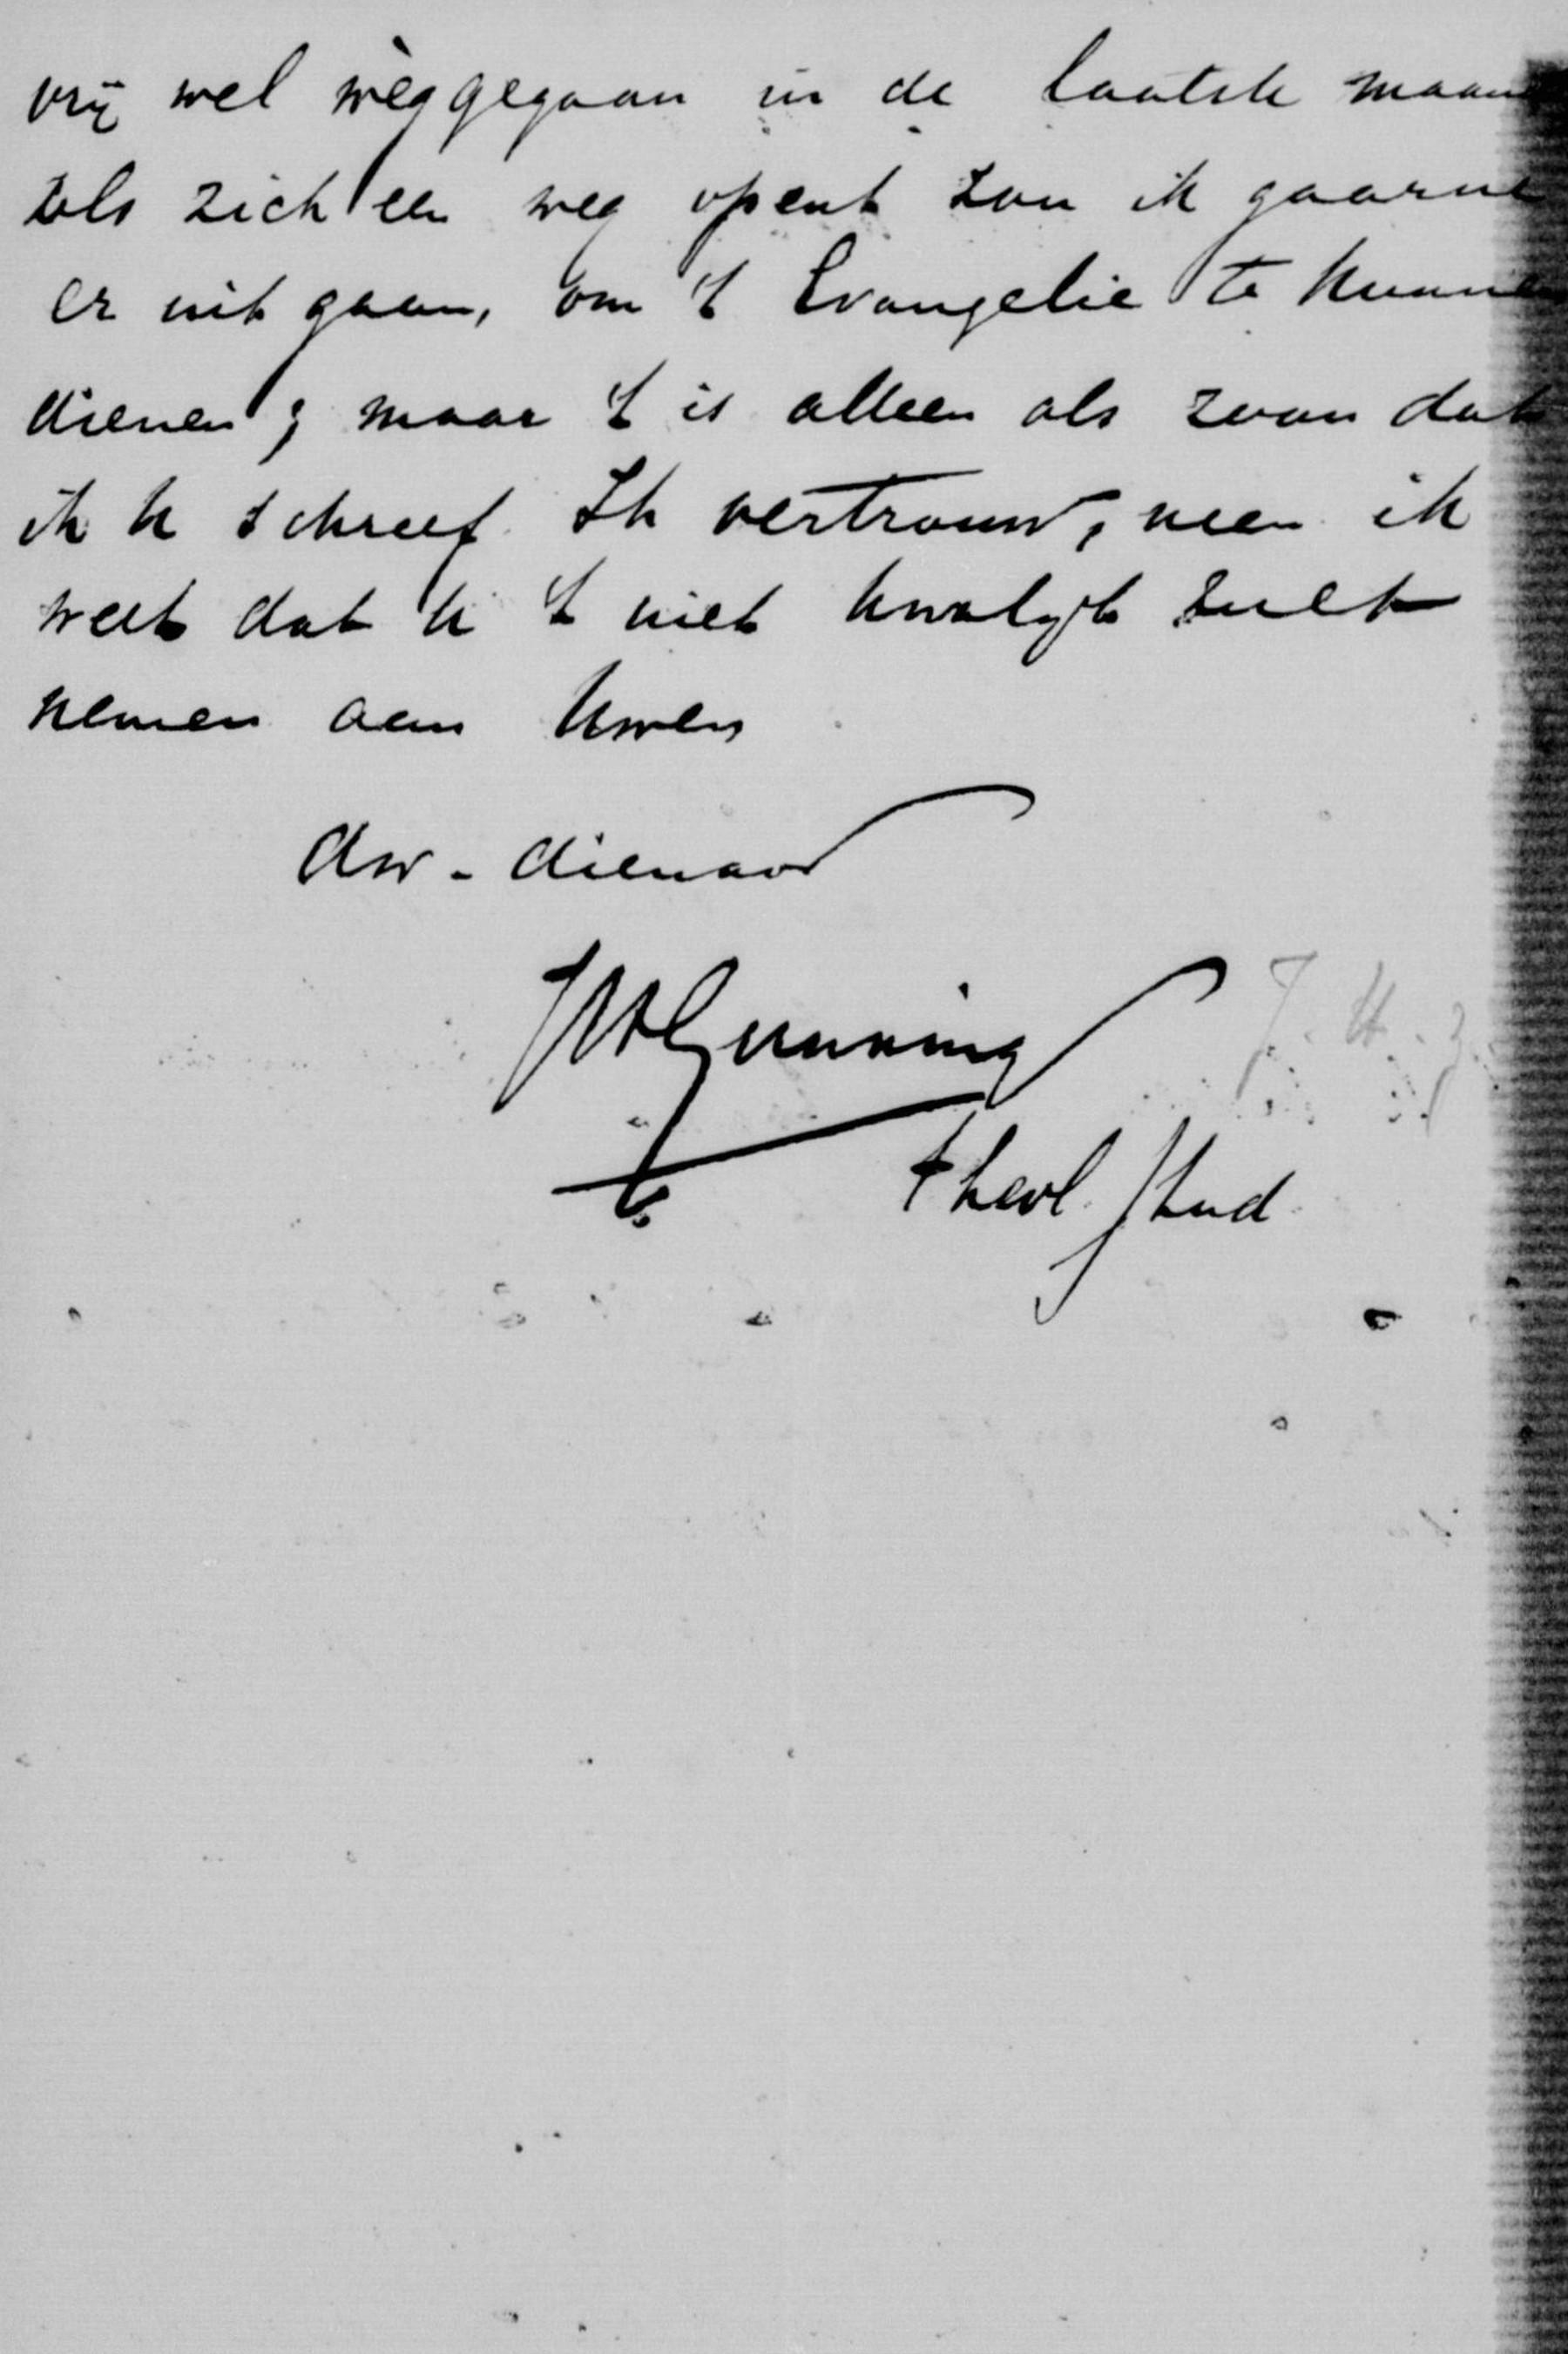 vrij wel wèggegaan in de laatste maan
als zich een weg opent zou ik gaarne
er uit gaan, om 't Evangelie te kunne
dienen; maar 't is alleen als zoon dat
ik U schreef. Ik vertrouw, neen ik
weet dat U 't niet kwalijk zult
nemen aan Uwen
dw. dienaar
JHGunning
J.H.z.
theol. stud.